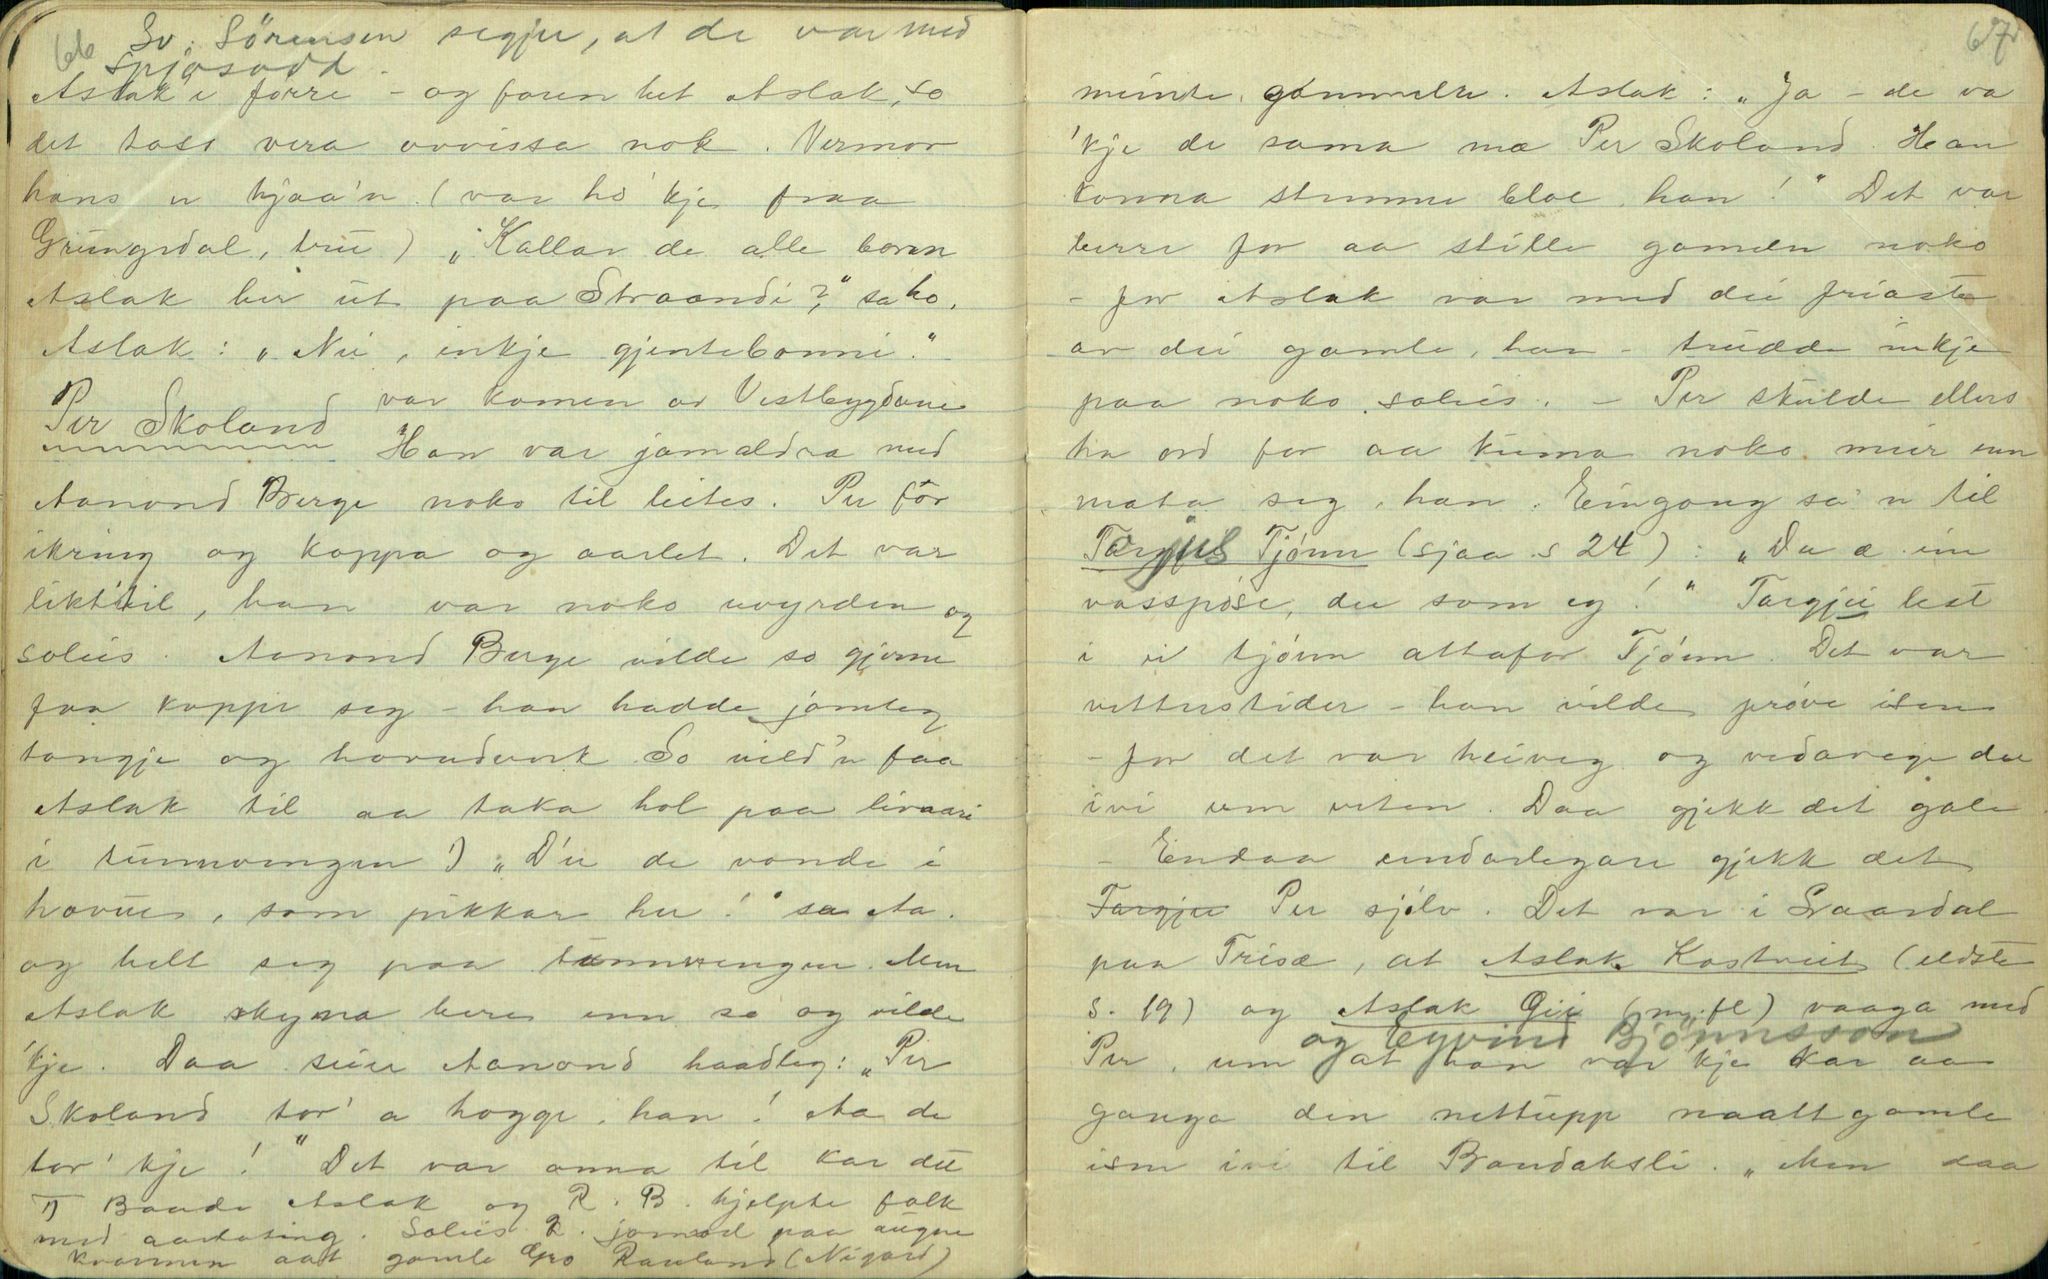 66 Sv. Sörensen segjer, at de var med
Spjosodd -
Aslak i förre - og faren het Aslak, so
det tass vera uvissa nok. Vermor
hans er hjaa'n. (var ho 'kje fraa
Grungedal, tru) „Kallar de alle born
Aslak her ut paa Straandi?" sa ho.
Aslak: „Nei, inkje gjentebonni."
Per Skoland var komen av Vestbygdane
Han var jamaldra med
Aanond Berge noko til leites. Per for
ikring og koppa og aarlet. Det var
likt til, han var noko uvyrden og
soleis. Aanond Berge vilde so gjerne
faa koppe seg - han hadde jamleg
tongje og hovudverk. So vild'n faa
Aslak til aa taka hol paa livaari
i tunnvengen 1) „D'er de vonde i
hovue, som pikkar her!" sa Aa.
og helt seg paa tunnvengen. Men
Aslak skyna bere enn so og vilde
'kje. Daa seier Aanond haadleg: „Per
Skoland tor' a hogge, han! Aa de
tor' kje!" Det var anna til kar du
1) Baade Aslak og R. B. hjelpte folk
med aarlating. Soleis R. jamvel paa augne
kvarmen aat gamle Gro Rauland (Nigard)
67
meinte, gammeln. Aslak: „Ja - de va
'kje de sama mæ Per Skoland. Han
konna stemme bloe, han!" Det var
berre for aa stille gameln noko
- for Aslak var med dei friaste
av dei gamle, han - trudde inkje
paa noko soleis. - Per skulde ellers
ha ord for aa kunna noko meir enn
mata seg, han. Eingong sa'n til
Targjus Tjönn (sjaa s 24): „Du æ ein
vasspose, du som eg!" Targjei lest
i ei tjönn attafor Tjönn. Det var
vetterstider - han vilde pröve isen
- for det var heiveg og vedavege der
ivi um veten. Daa gjekk det gale
- Endaa underlegare gjekk det
Targjei Per sjölv. Det var i Laardal
paa Trisæ, at Aslak Kostveit (eldste
s. 19) og Aslak Gii (m. fl) vaaga med
og Eyvind Bjönnsson
Per, um at han var 'kje kar aa
ganga den nettupp naattgamle
isen ivi til Bandaksli. „Men daa